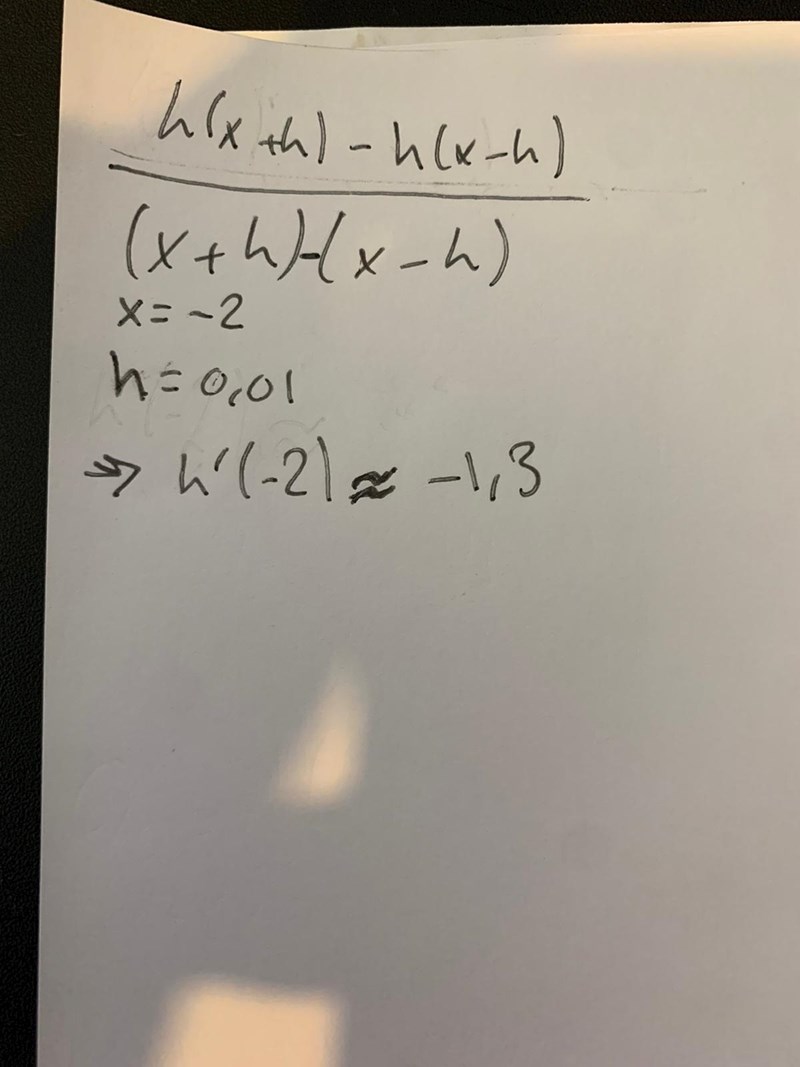 h(x+h) - h(x-h)
(x+h)-(x-h)
x = -2
h = 0,01
⇒ h'(-2) ≈ -1,3